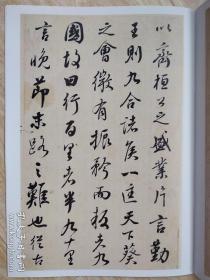 以齐桓公之盛業片言勤
王則九合諸侯一匡天下葵
之會微有振矜而叛者九
國故曰行百里者半九十里
言晚節末路之難也從古